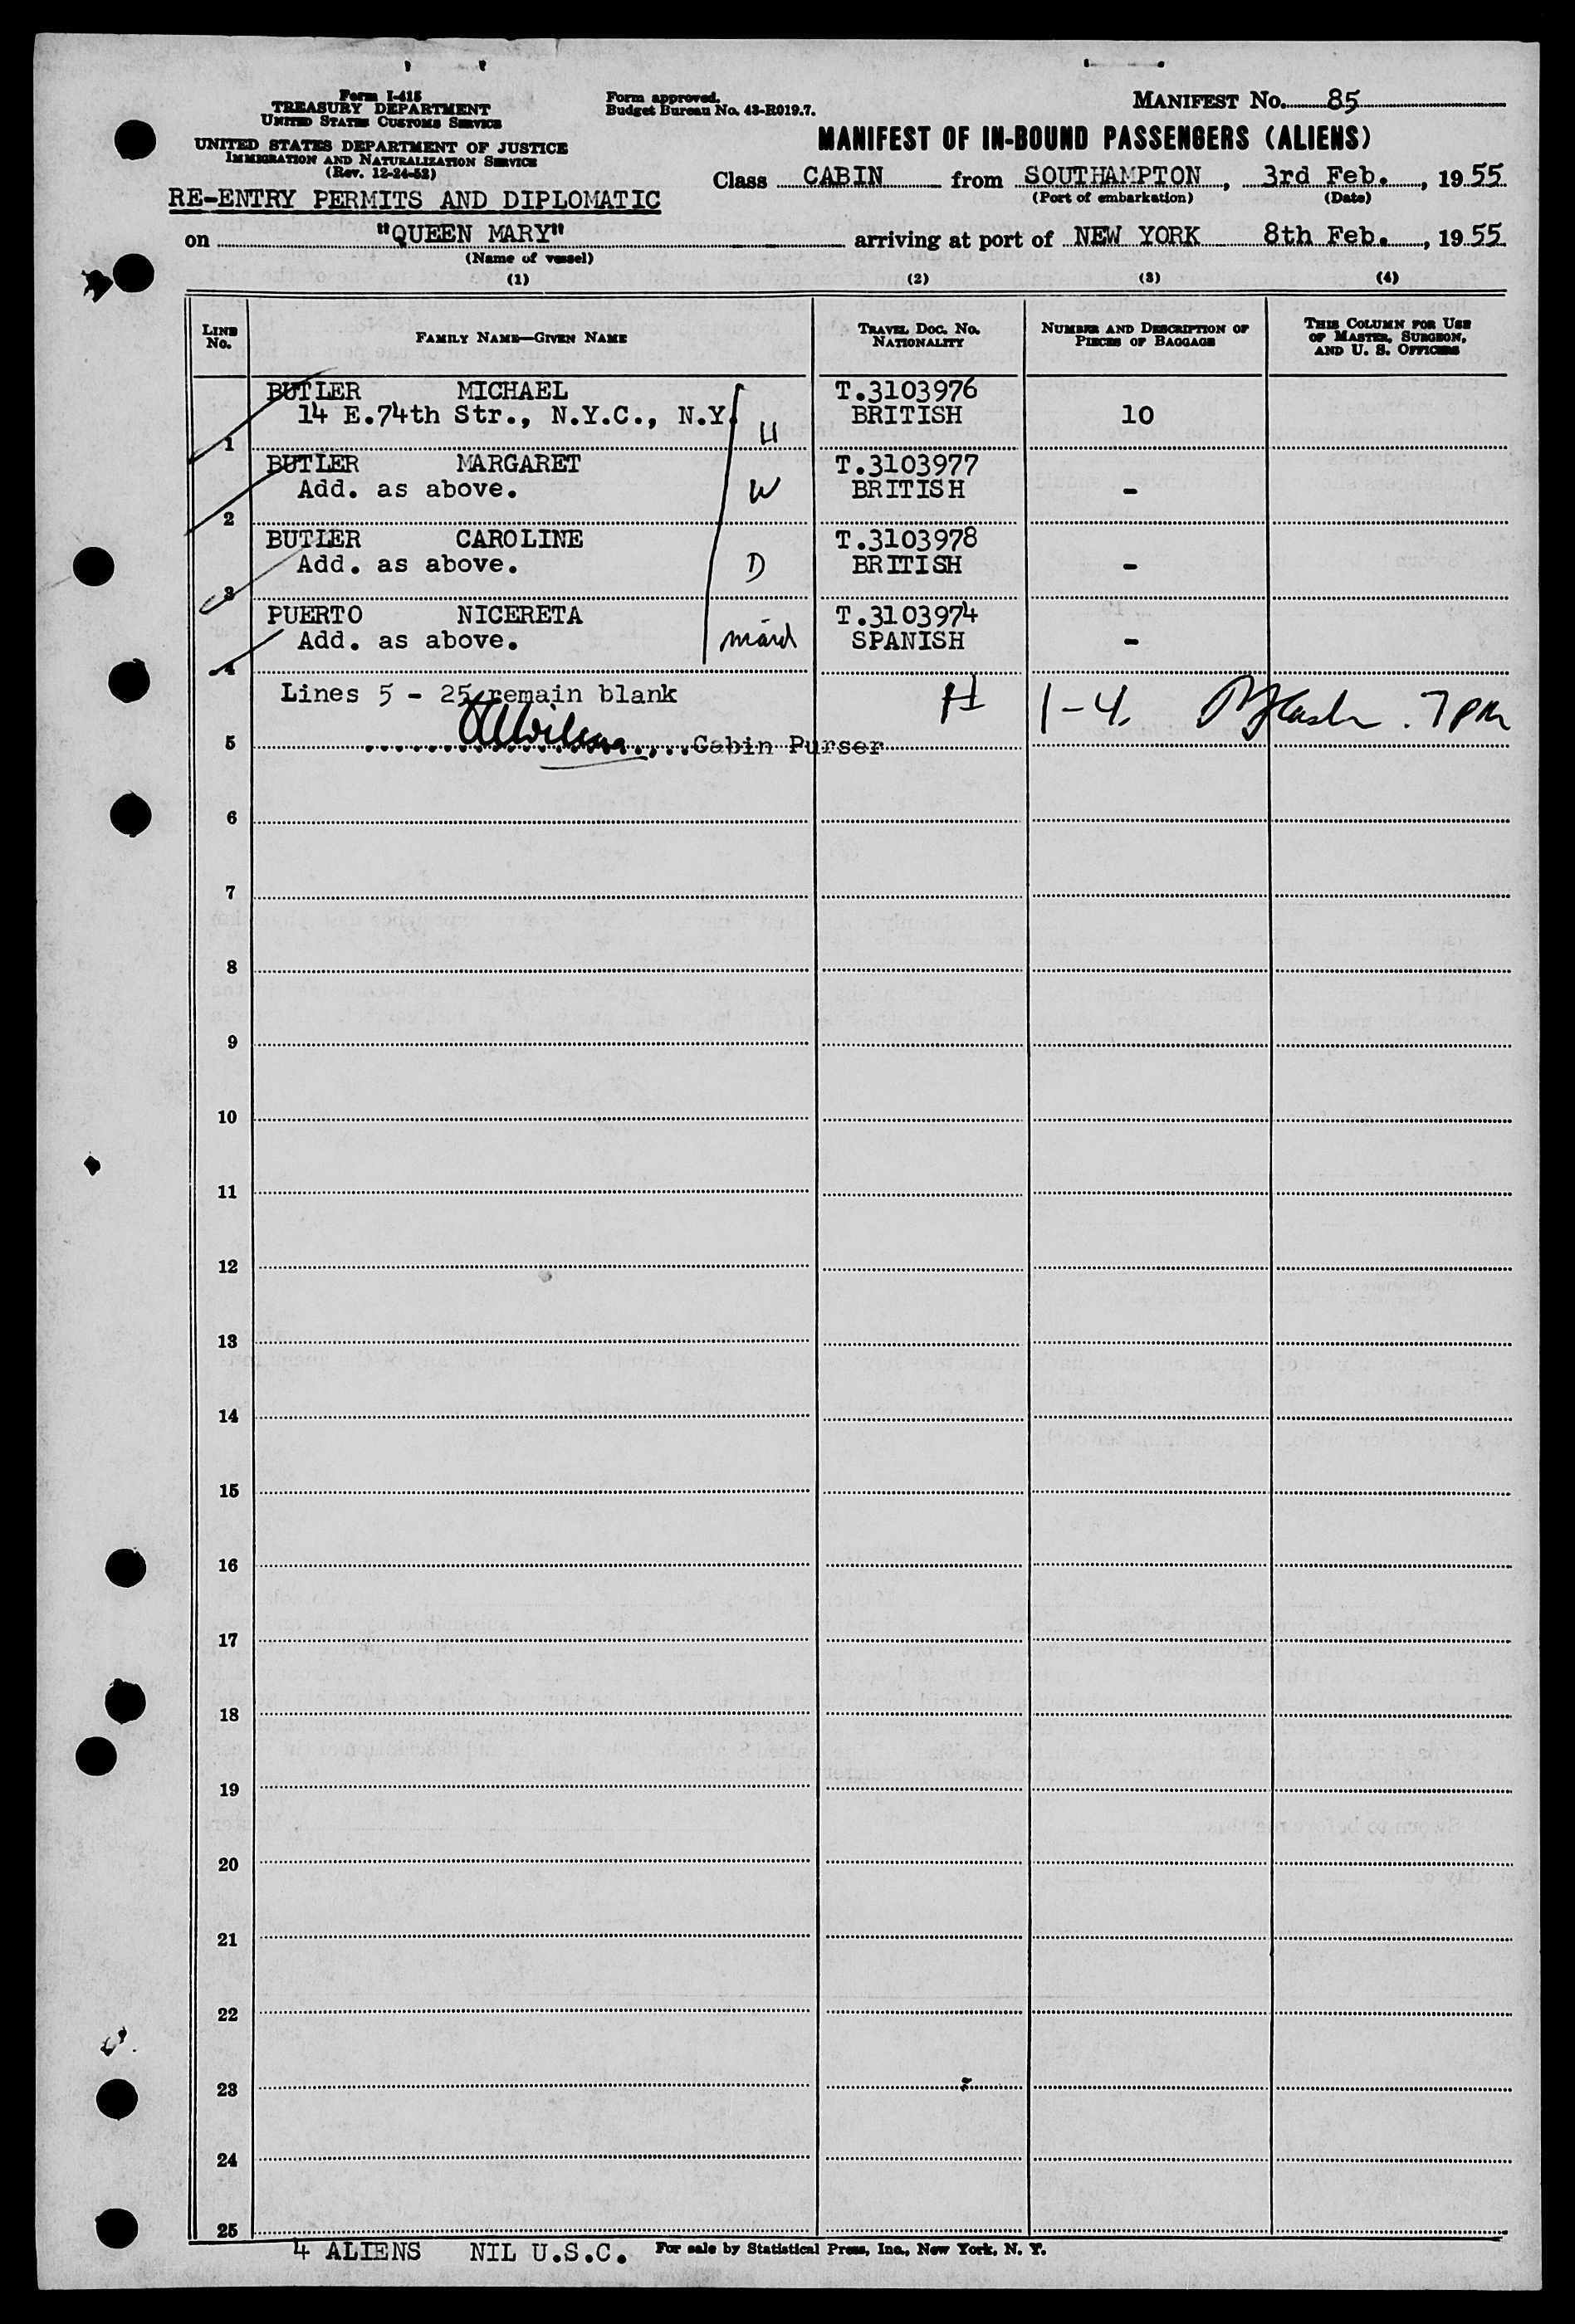 Form I-415
TREASURY DEPARTMENT
UNITED STATES CUSTOMS SERVICE
UNITED STATES DEPARTMENT OF JUSTICE
IMMIGRATION AND NATURALIZATION SERVICE
(Rev. 12-24-52)
RE-ENTRY PERMITS AND DIPLOMATIC
Form approved.
Budget Bureau No. 43-R019.7.
MANIFEST NO. 85
MANIFEST OF IN-BOUND PASSENGERS (ALIENS)
Class CABIN from SOUTHAMPTON, 3rd Feb., 1955
(Port of embarkation) (Date)
on "QUEEN MARY" arriving at port of NEW YORK 8th Feb., 1955
(Name of vessel)
(1) (2) (3) (4)
LINE NO.
FAMILY NAME—GIVEN NAME
TRAVEL DOC. NO. NATIONALITY
NUMBER AND DESCRIPTION OF PIECES OF BAGGAGE
THIS COLUMN FOR USE OF MASTER, SURGEON, AND U. S. OFFICERS
BUTLER MICHAEL T.3103976
14 E.74th Str., N.Y.C., N.Y. BRITISH 10
1 H
BUTLER MARGARET T.3103977
Add. as above. W BRITISH -
2
BUTLER CAROLINE T.3103978
Add. as above. D BRITISH -
3
PUERTO NICERETA T.3103974
Add. as above. maid SPANISH -
4
Lines 5 - 25 remain blank 1-4. 7 PM
5 Cabin Purser
6
7
8
9
10
11
12
13
14
15
16
17
18
19
20
21
22
23
24
25
4 ALIENS NIL U.S.C. For sale by Statistical Press, Inc., New York, N. Y.